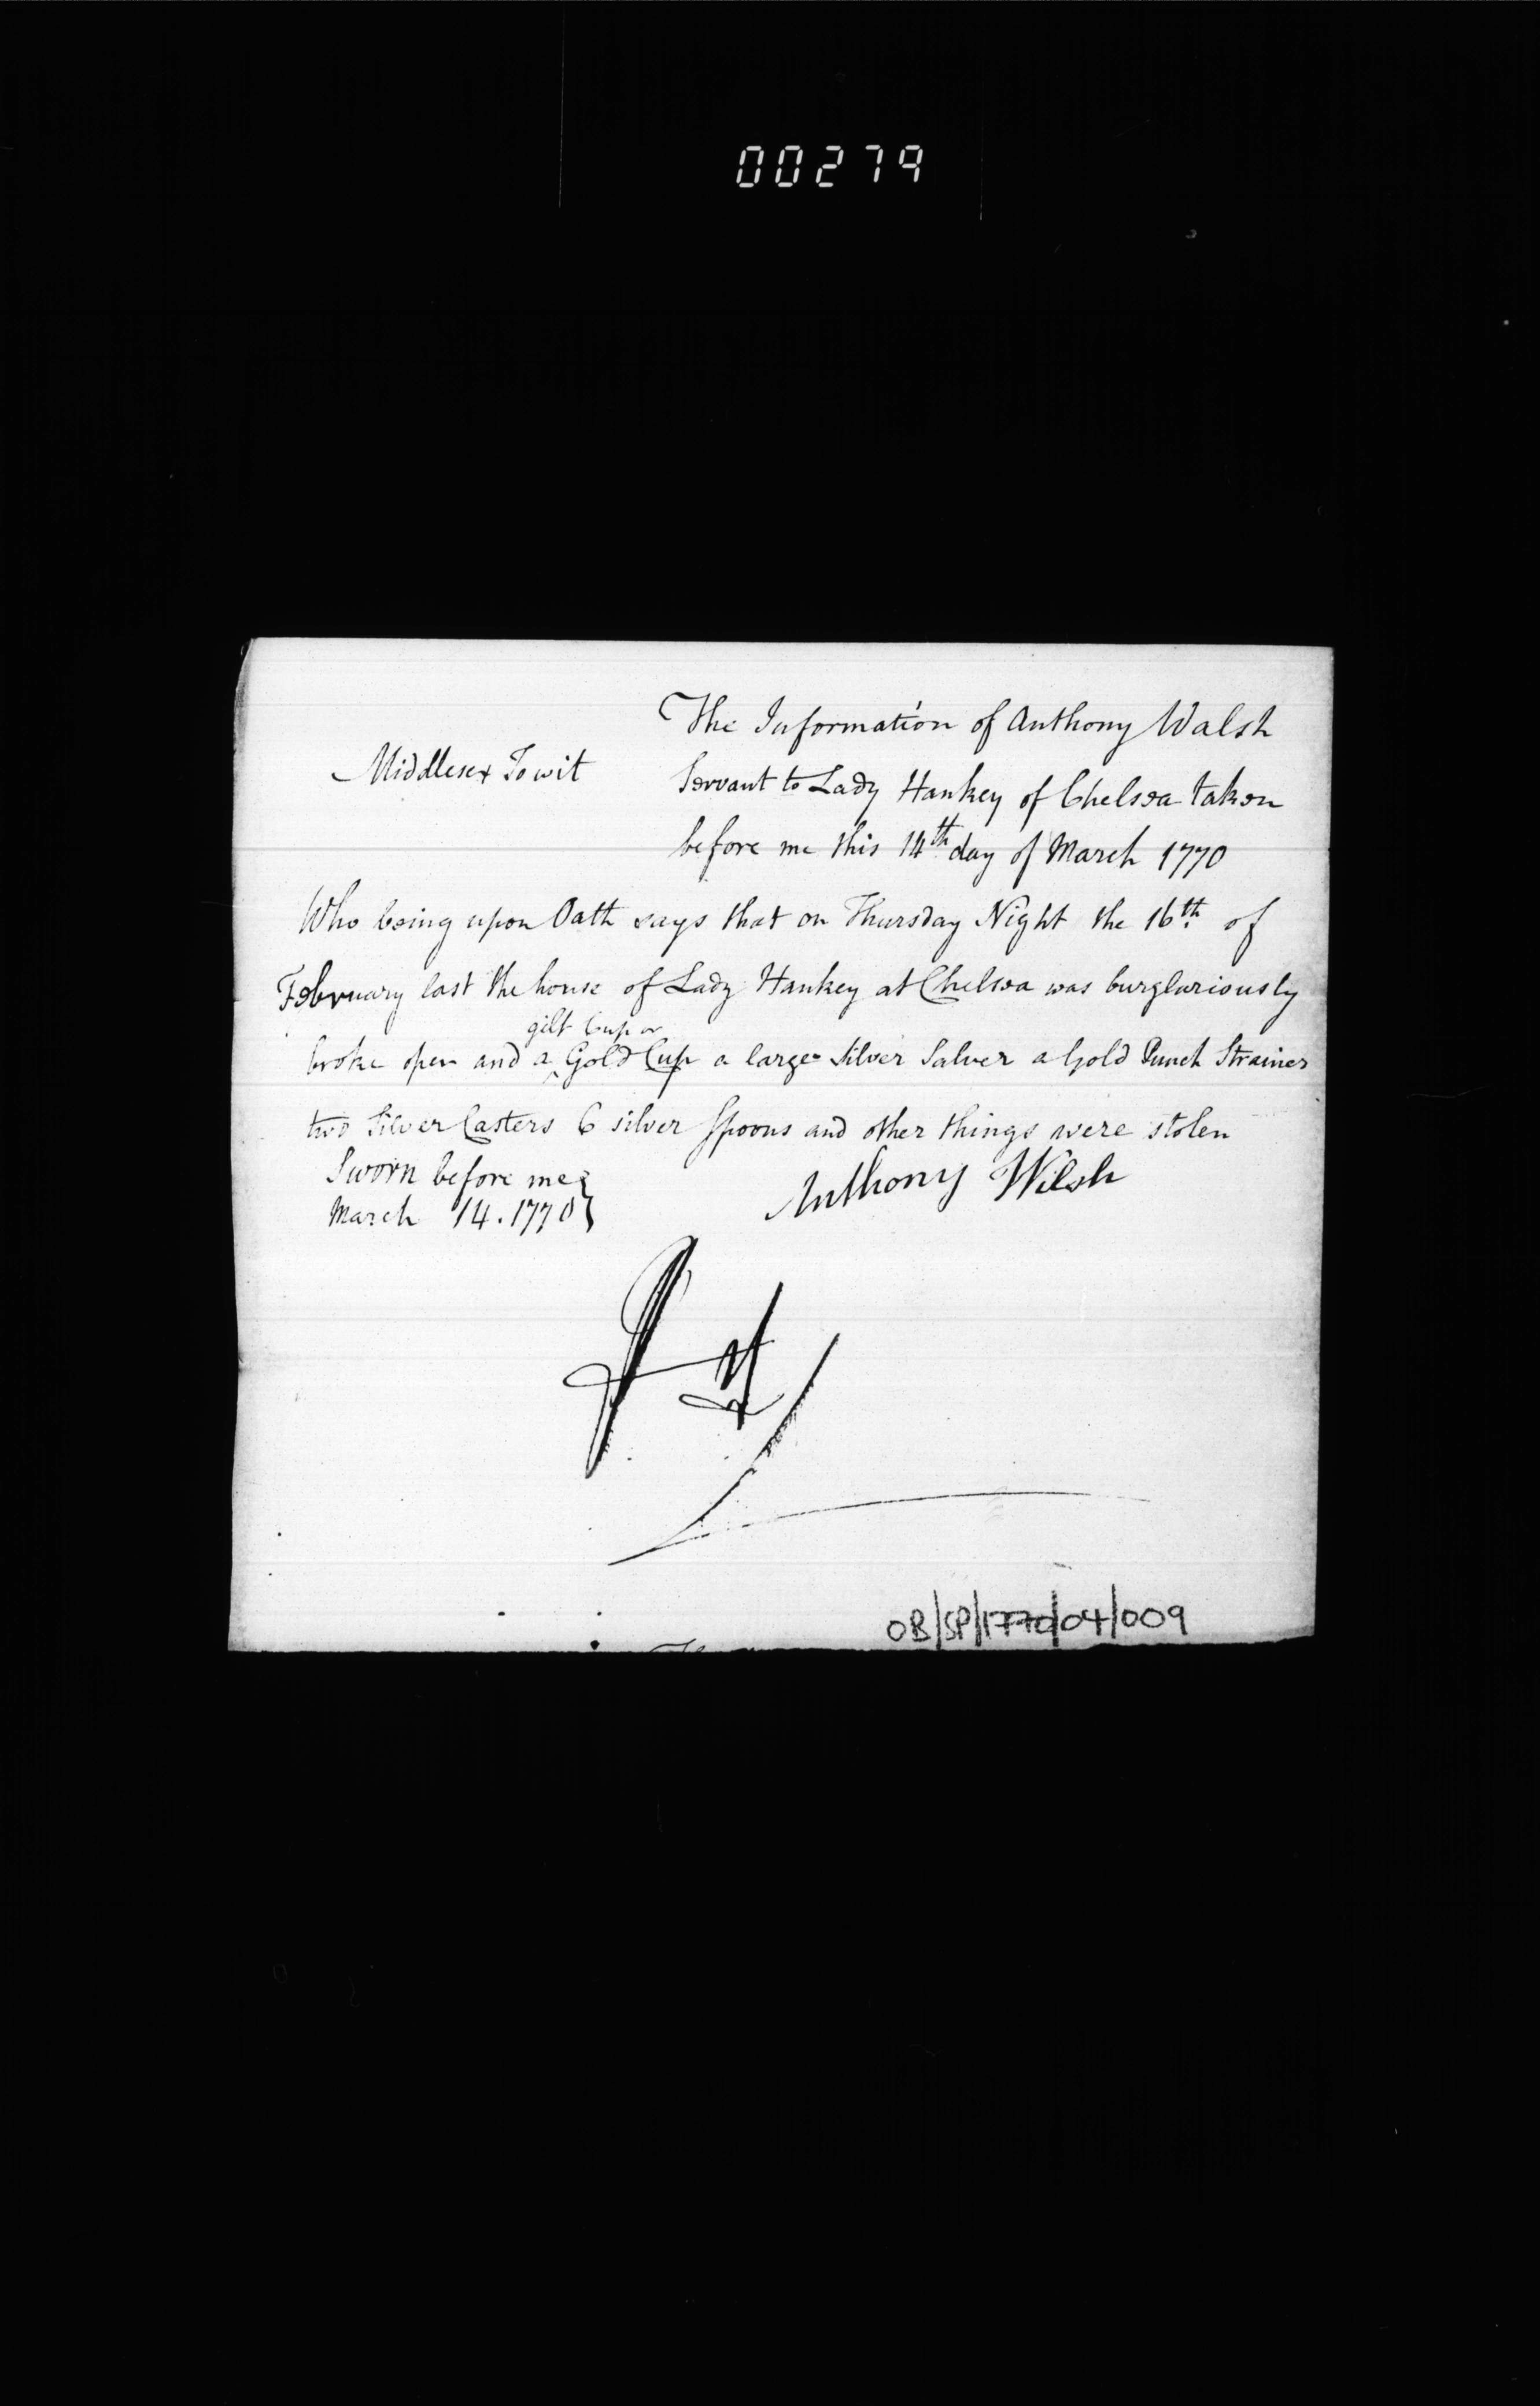 00279
The Information of Anthony Walsh
Middlesex To wit
Servant to Lady Hankey of Chelsea taken
before me this 14th day of March 1770
Who being upon Oath says that on Thursday Night the 16th of
February last the house of Lady Hankey at Chelsea was burglariously
gilt Cup or
broke open and a ^ Gold Cup a large Silver Salver a Gold Punch Strainer
two Silver Casters 6 silver Spoons and other things were stolen
Sworn before me }
March 14. 1770 }
Anthony Wilsh
OB/SP/1770/04/009